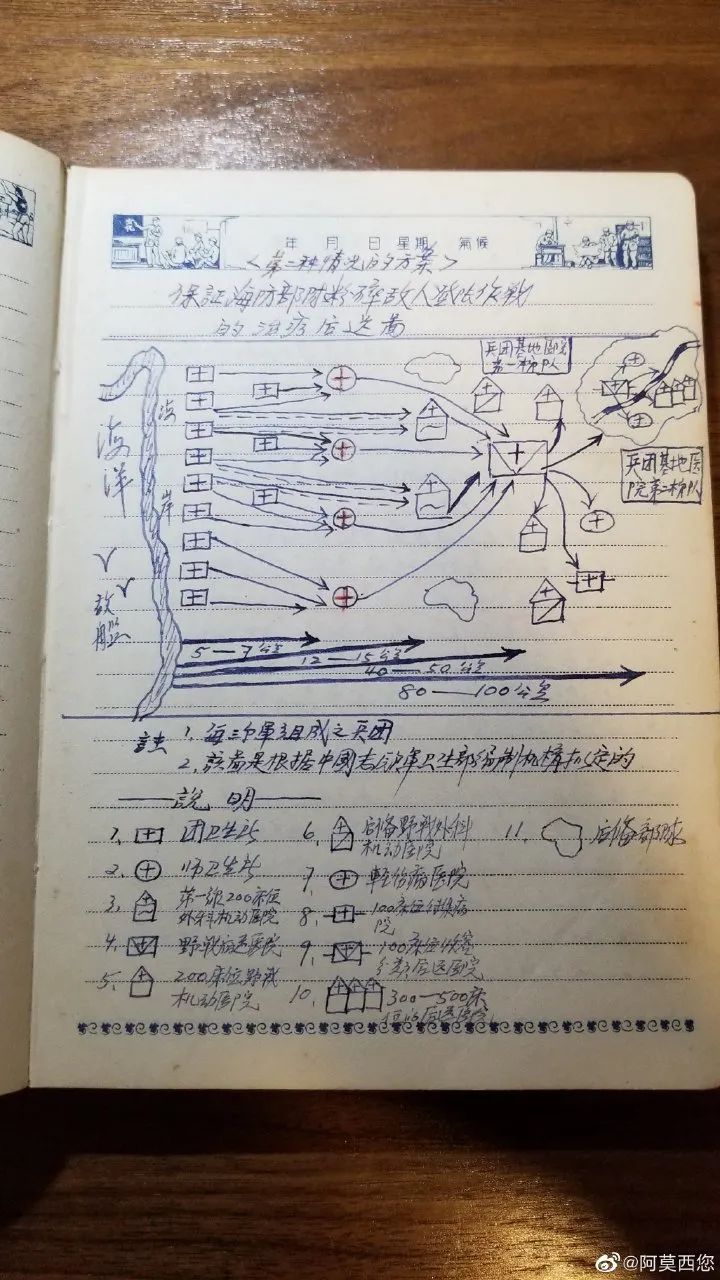 年 月 日 星期 氣候
<第二种情况的方案>
保証海防部队粉碎敌人登陆作战
的治疗后送图
兵团基地医院
第一梯队
海洋
海岸
敌
舰
兵团基地医
院第二梯队
5—7公里
12—15公里
40—50公里
80—100公里
註 1. 每三个軍组成之兵团
2. 該图是根据中國志愿軍卫生部编制机構拟定的
——説 明——
1. 团卫生所
2. 师卫生所
3. 第一線200床位
外科机动医院
4. 野戰後送医院
5. 200床位野战
机动医院
6. 后备野戰外科
机动医院
7. 軽伤病医院
8. 100床位传染病
院
9. 100床位收容
分类后送医院
10. 300—500床
位的后送医院
11. 后备部队
@阿莫西您